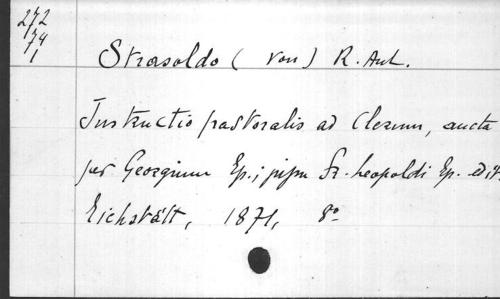 272
74
1
Strasoldo (von) R. Ant.
Instructio pastoralis ad Clerum, aucta
per Georgium Ep.; jussu Fr. Leopoldi Ep. edit.
Eichstätt, 1871, 8°